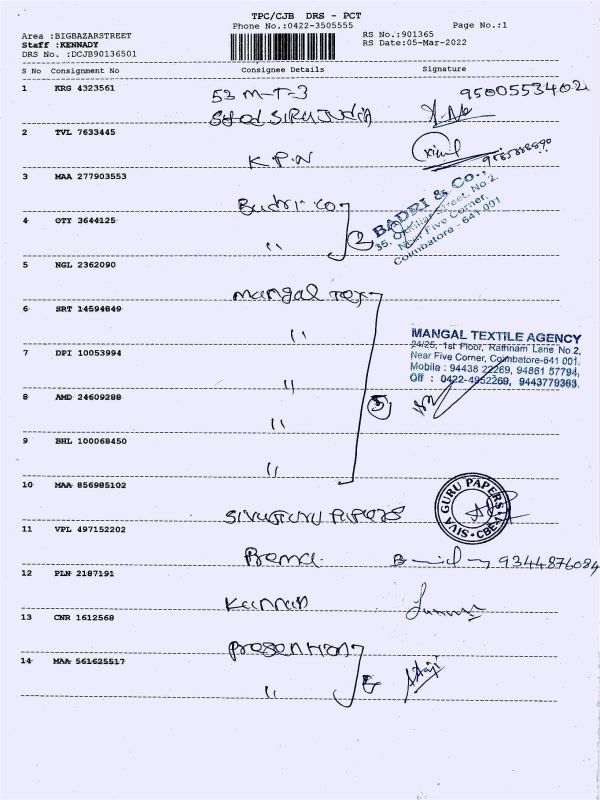 TPC/CJB DRS - PCT
Phone No.:0422-3505555
Page No.:1
Area :BIGBAZARSTREET
RS No.:901365
Staff :KENNADY
RS Date:05-Mar-2022
DRS No. :DCJB90136501
S No Consignment No Consignee Details Signature
1 KRG 4323561
53 M-T-3
9500553402
Syed SIRAJUDIN
2 TVL 7633445
K.P.N
3 MAA 277903553
Badri co
BADRI & CO.,
Near Five Corner,
Coimbatore - 641 001
4 OTY 3644125
" 2
5 NGL 2362090
Mangal Tex
6 SRT 14594849
"
MANGAL TEXTILE AGENCY
24/25, 1st Floor, Rathnam Lane No.2,
Near Five Corner, Coimbatore-641 001.
Mobile : 94438 22269, 94861 57794,
Off : 0422-4952269, 9443779363.
7 DPI 10053994
"
8 AMD 24609288
" 5
9 BHL 100068450
"
10 MAA 856985102
Sivaguru Papers
SIVA GURU PAPERS
CBE
11 VPL 497152202
Prema
9344876084
12 PLN 2187191
Kannan
13 CNR 1612568
Presention
14 MAA 561625517
"